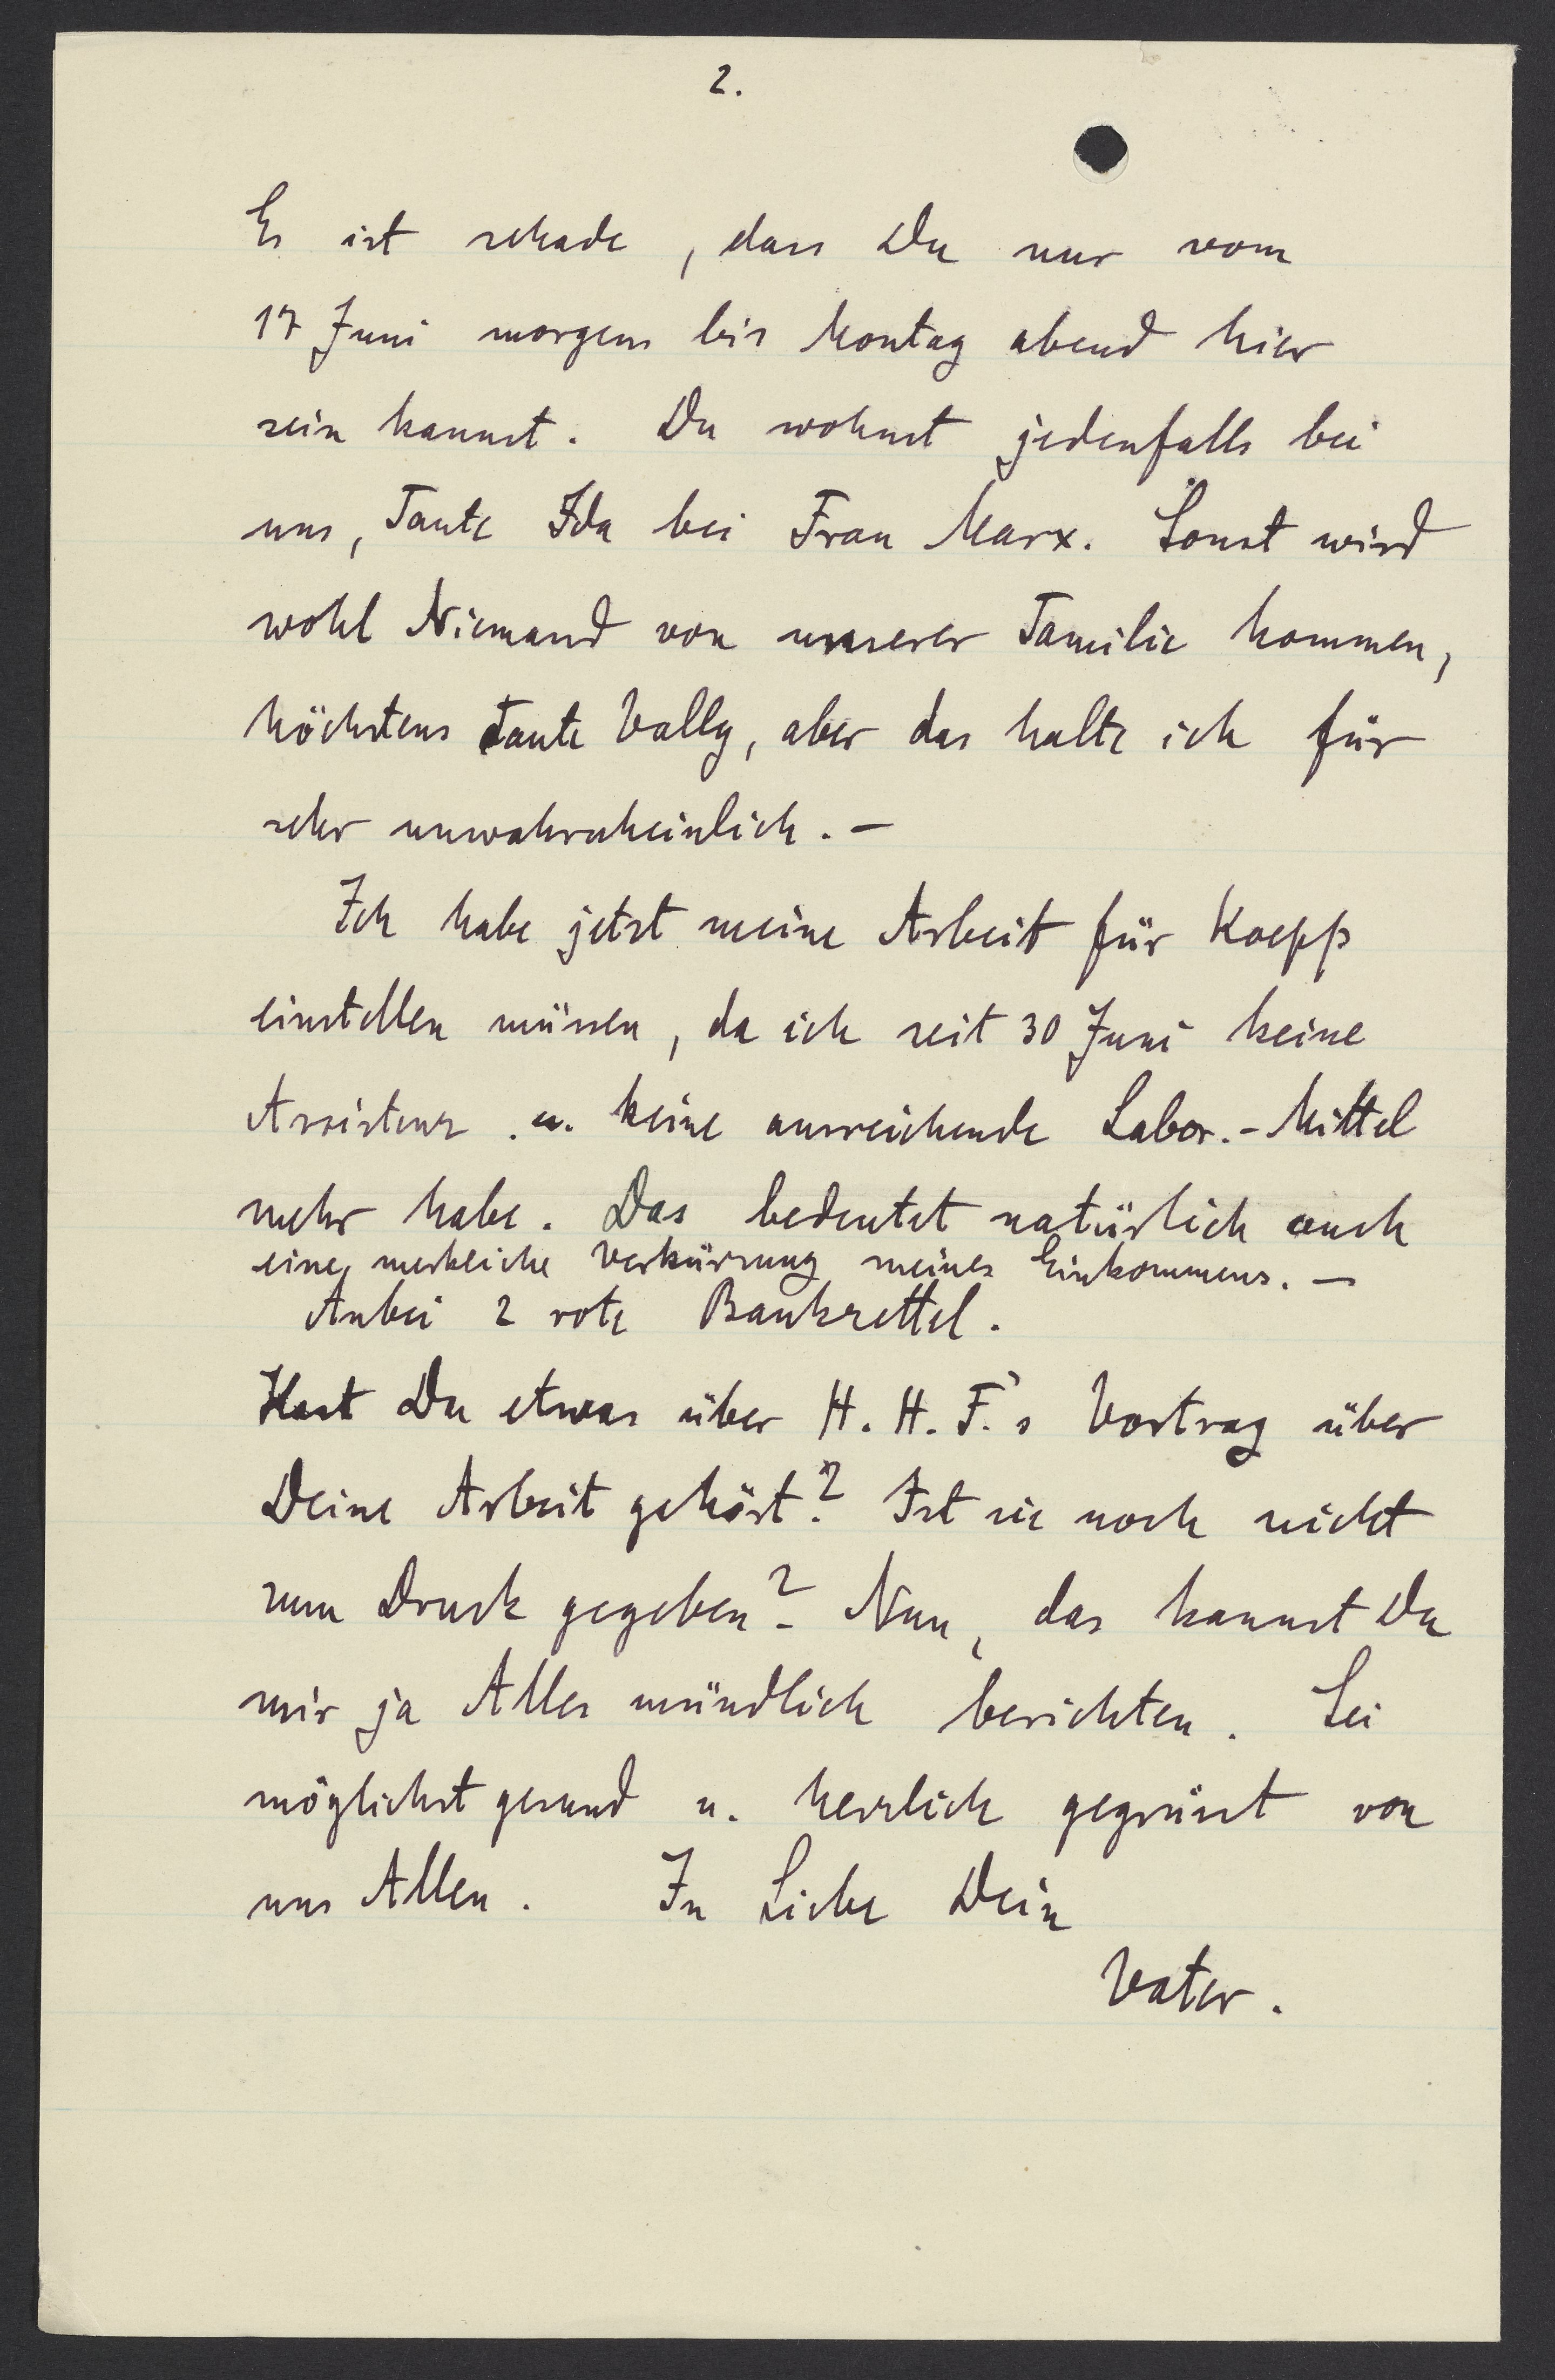 2.
Es ist schade, dass Du nur vom
17 Juni morgens bis Montag abend hier
sein kannst. Du wohnst jedenfalls bei
uns, Tante Ida bei Frau Marx. Sonst wird
wohl Niemand von unserer Familie kommen,
höchstens Tante Vally, aber das halte ich für
sehr unwahrscheinlich. -
Ich habe jetzt meine Arbeit für Koepp
einstellen müssen, da ich seit 30 Juni keine
Assistenz u. keine ausreichende Labor.-Mittel
mehr habe. Das bedeutet natürlich auch
eine merkliche Verkürzung meines Einkommens. -
Anbei 2 rote Bankzettel.
Hast Du etwas über H. H. F.'s Vortrag über
Deine Arbeit gehört? Ist sie noch nicht
zum Druck gegeben? - Nun, das kannst Du
mir ja Alles mündlich berichten. Sei
möglichst gesund u. herzlich gegrüsst von
uns Allen. In Liebe Dein
Vater.